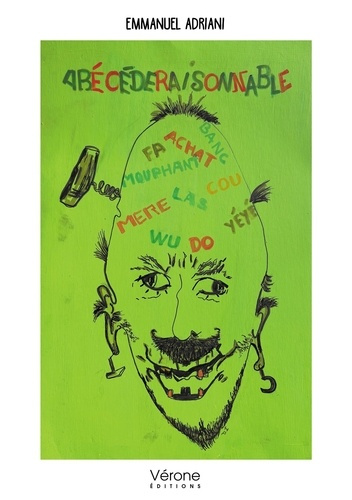 EMMANUEL ADRIANI
ABÉCÉDERAISONNABLE
BANG
ACHAT
FA
MOUPHANT
COU
LAS
MERE
YÉYÉ
WU DO
Vérone
ÉDITIONS